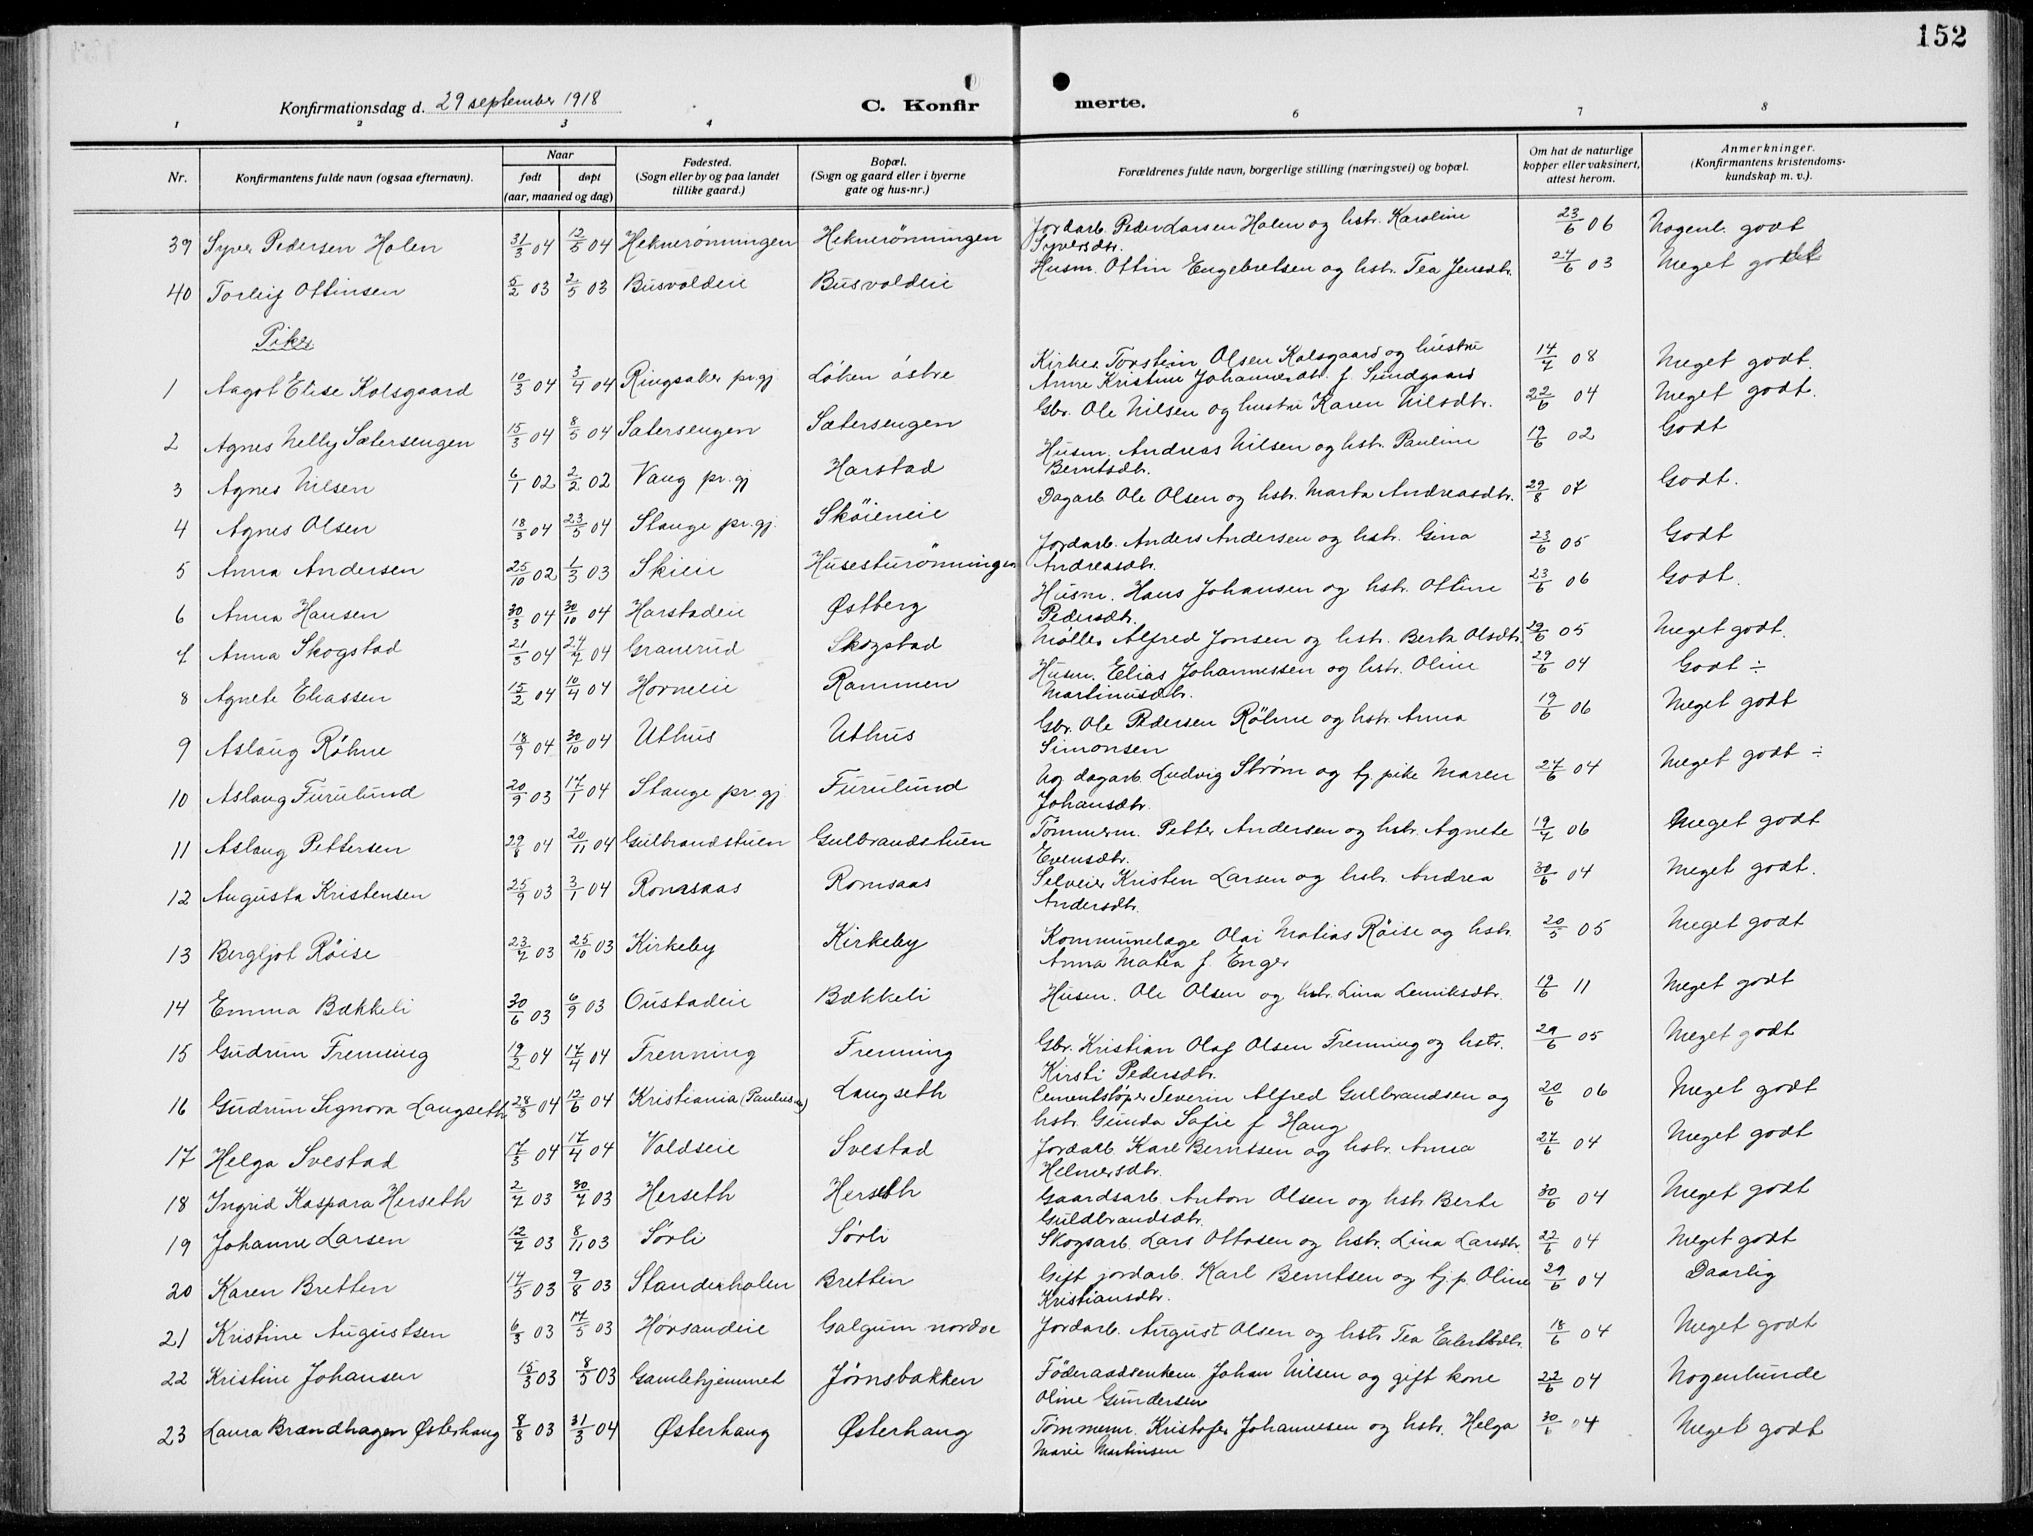 152
Konfirmationsdag d. 29 september 1918
C. Konfir merte.
1 2 3 4 6 7 8
Nr. Konfirmantens fulde navn (ogsaa efternavn). Naar født døpt (aar, maaned og dag) Fødested. (Sogn eller by og paa landet tillike gaard.) Bopæl. (Sogn og gaard eller i byerne gate og hus-nr.) Forældrenes fulde navn, borgerlige stilling (næringsvei) og bopæl. Om hat de naturlige kopper eller vaksinert, attest herom. Anmerkninger. (Konfirmantens kristendomskundskap m. v.).
39 Syver Pedersen Holen 31/3 04 12/5 04 Heknerönningen Heknerönningen Jordarb. Peder Larsen Holen og hstr. Karoline Syversdtr. 23/6 06 Nogenl. godt
40 Torleif Ottinsen 5/2 03 2/5 03 Busvoldeie Busvoldeie Husm. Ottin Engebretsen og hstr. Tea Jensdtr. 27/6 03 Meget godt
Piker
1 Aagot Elise Kolsgaard 10/3 04 3/4 04 Ringsaker pr.gj Löken östre Kirkes. Torstein Olsen Kolsgaard og hustru Anne Kristine Johannesdtr. f. Sundgaard 14/7 08 Meget godt.
2 Agnes Nelly Sætersengen 15/3 04 8/5 04 Sætersengen Sætersengen Gbr. Ole Nilsen og hustru Karen Nilsdtr. 22/6 04 Meget godt.
3 Agnes Nilsen 6/1 02 2/2 02 Vang pr. gj Harstad Husm. Andreas Nilsen og hstr. Pauline Berntsdtr. 19/6 02 Godt
4 Agnes Olsen 18/3 04 23/5 04 Stange pr. gj. Sköieneie Dagarb. Ole Olsen og hstr. Marta Andreasdtr. 29/8 07 Godt.
5 Anna Andersen 25/10 02 1/3 03 Skieie Husesturönningen Jordarb. Anders Andersen og hstr. Gina Andreasdtr. 23/6 05 Godt
6 Anna Hansen 30/3 04 30/10 04 Harstadeie Østberg Husm. Hans Johansen og hstr. Ottine Pedersdtr. 23/6 06 Godt.
7 Anna Skogstad 21/3 04 24/7 04 Granerud Skogstad Møller Alfred Jonsen og hstr. Berta Olsdtr. 29/6 05 Meget godt.
8 Agnete Eliassen 15/2 04 10/4 04 Horneie Rammen Husm. Elias Johannessen og hstr. Oline Martinusdtr. 29/6 04 Godt ÷
9 Aslaug Röhne 18/9 04 30/10 04 Uthus Uthus Gbr. Ole Pedersen Röhne og hstr. Anna Simonsen 19/6 06 Meget godt
10 Aslaug Furulund 20/9 03 17/1 04 Stange pr. gj. Furulund Ug dagarb. Ludvig Strøm og tj. pike Maren Johansdtr. 27/6 04 Meget godt ÷
11 Aslaug Pettersen 29/8 04 20/11 04 Gulbrandstuen Gulbrandstuen Tømmerm. Petter Andersen og hstr. Agnete Evensdtr. 19/7 06 Meget godt
12 Augusta Kristensen 25/9 03 3/1 04 Romsaas Romsaas Selveier Kristen Larsen og hstr. Andrea Andersdtr. 30/6 04 Meget godt.
13 Bergljot Röise 23/7 03 25/10 03 Kirkeby Kirkeby Kommunelæge Olai Matias Röise og hstr. Anna Matea f. Enger 20/5 05 Meget godt
14 Emma Bækkeli 30/6 03 6/9 03 Oustadeie Bækkeli Husm. Ole Olsen og hstr. Lina Lemiksdtr. 19/6 11 Meget godt
15 Gudrun Frenning 19/2 04 17/4 04 Frenning Frenning Gbr. Kristian Olaf Olsen Frenning og hstr. Kirsti Pedersdtr. 29/6 05 Meget godt
16 Gudrun Signora Langseth 28/3 04 12/6 04 Kristiania (Paulus m) Langseth Cementstøper Severin Alfred Gulbrandsen og hstr. Gunda Sofie f Haug 20/6 06 Meget godt
17 Helga Svestad 17/3 04 17/4 04 Voldseie Svestad Jordarb. Karl Berntsen og hstr. Anna Helmersdtr. 27/6 04 Meget godt
18 Ingrid Kaspara Herseth 2/7 03 30/7 03 Herseth Herseth Gaardsarb. Anton Olsen og hstr Berte Guldbrandsdtr. 30/6 04 Meget godt
19 Johanne Larsen 12/7 03 8/11 03 Sørli Sørli Skogsarb. Lars Ottosen og hstr. Lina Larsdtr. 22/6 04 Meget godt
20 Karen Bretten 14/5 03 9/8 03 Standerholen Bretten Gift jordarb. Karl Berntsen og tj.p. Oline Kristiansdtr. 29/6 04 Daarlig
21 Kristine Augustsen 6/3 03 17/5 03 Hørsandeie Galgum nordre Jordarb. August Olsen og hstr Tea Eilertsdtr. 18/6 04 Meget godt
22 Kristine Johansen 15/3 03 8/5 03 Gamlehjemmet Jørnsbakken Föderaadsenkem Johan Nilsen og gift kone Oline Gundersen 22/6 04 Nogenlunde
23 Laura Brændhagen Østerhaug 8/8 03 31/3 04 Østerhaug Østerhaug Tömmerm. Kristofer Johannesen og hstr. Helga Marie Martinsen 30/6 04 Meget godt